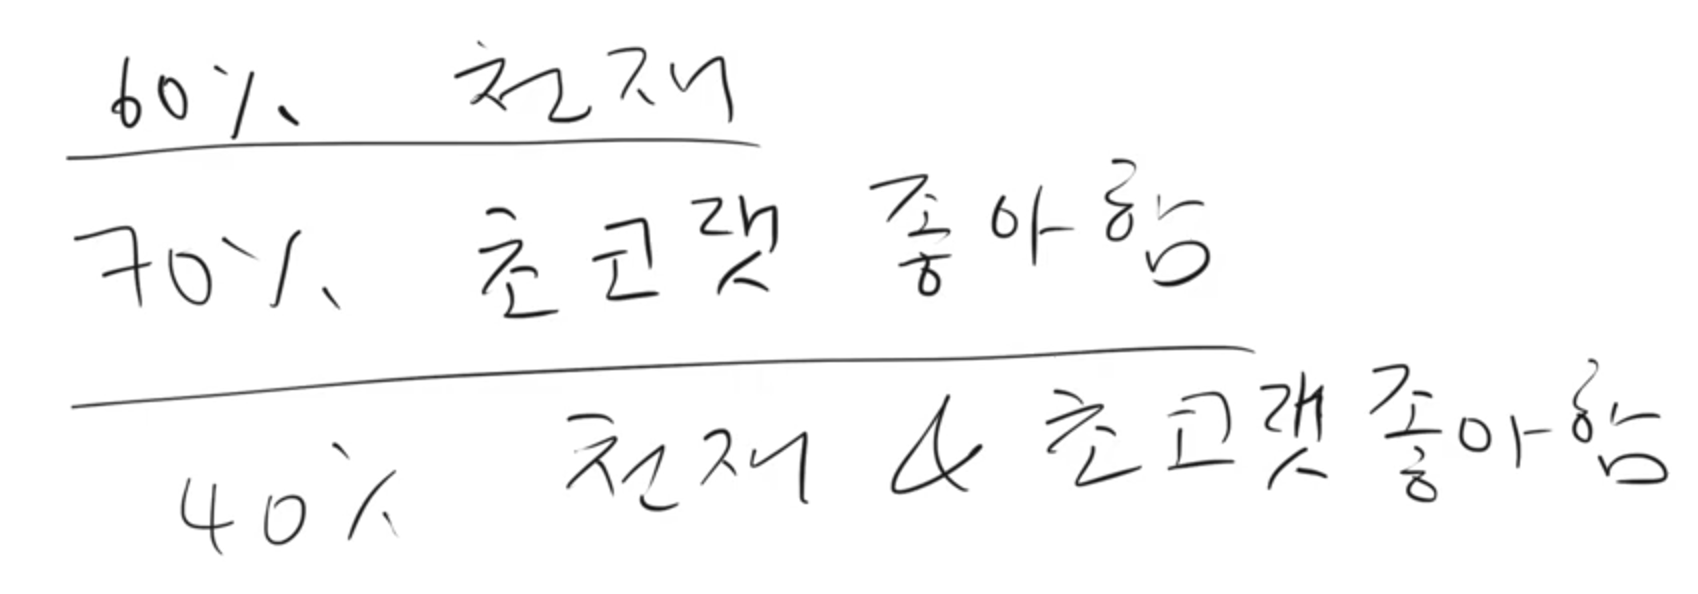 60% 천재
70% 초코랫 좋아함
40% 천재 & 초고랫 좋아함